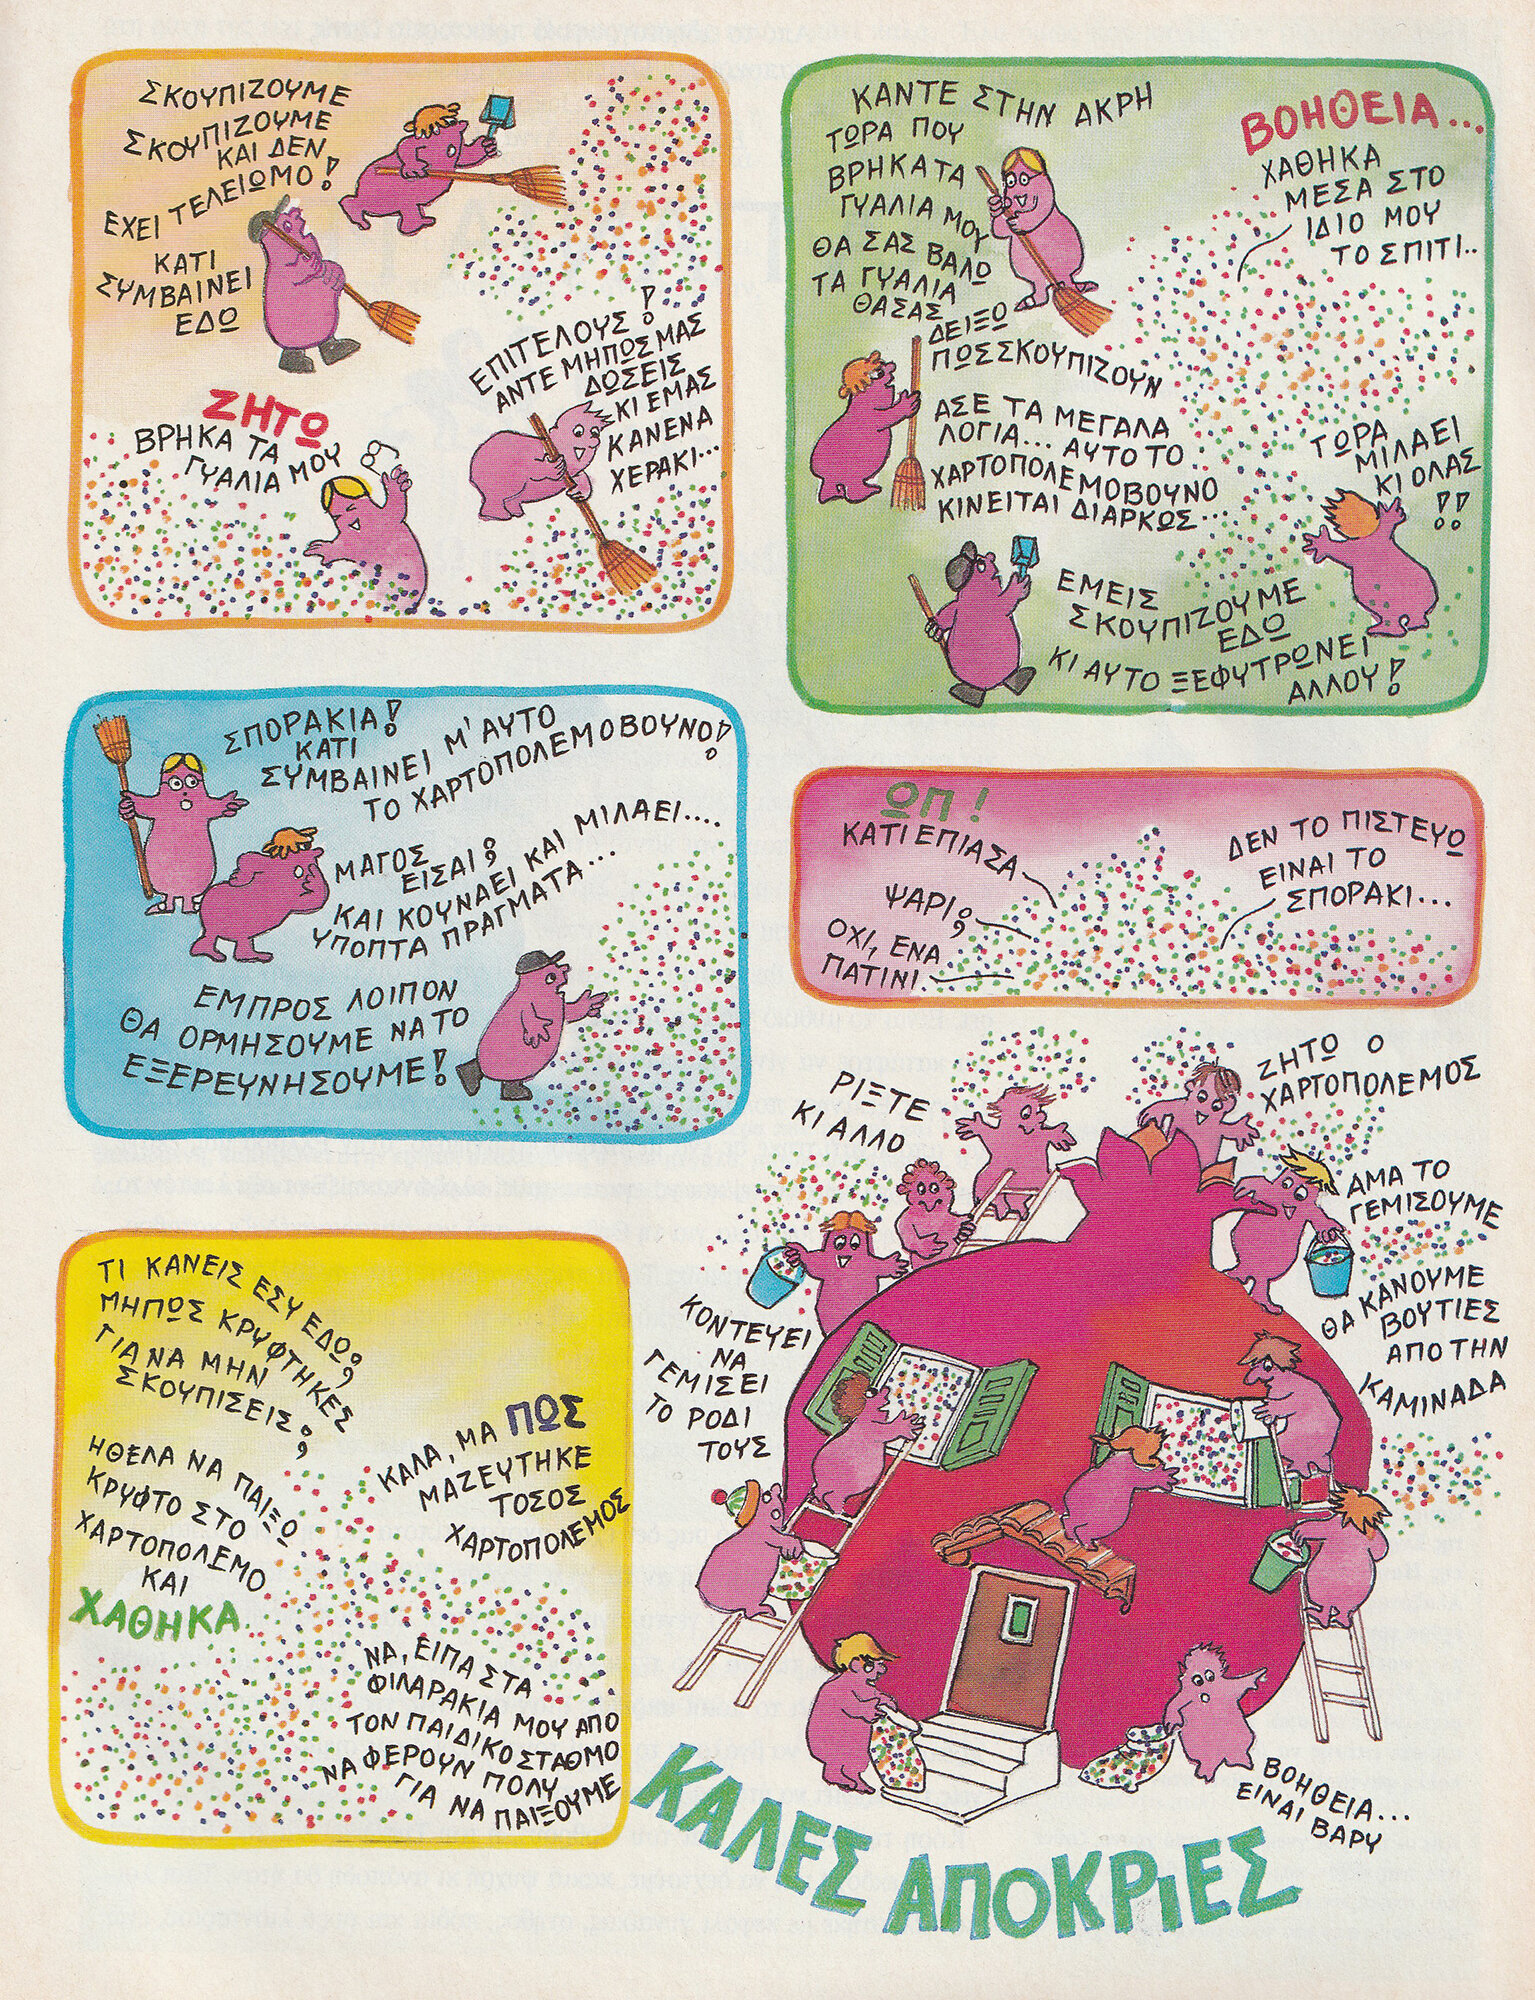 ΣΚΟΥΠΙΖΟΥΜΕ
ΣΚΟΥΠΙΖΟΥΜΕ
ΚΑΙ ΔΕΝ
ΕΧΕΙ ΤΕΛΕΙΩΜΟ!
ΚΑΤΙ
ΣΥΜΒΑΙΝΕΙ
ΕΔΩ
ΖΗΤΩ
ΒΡΗΚΑ ΤΑ
ΓΥΑΛΙΑ ΜΟΥ
ΕΠΙΤΕΛΟΥΣ!
ΑΝΤΕ ΜΗΠΩΣ ΜΑΣ
ΔΩΣΕΙΣ
ΚΙ ΕΜΑΣ
ΚΑΝΕΝΑ
ΧΕΡΑΚΙ...
ΚΑΝΤΕ ΣΤΗΝ ΑΚΡΗ
ΤΩΡΑ ΠΟΥ
ΒΡΗΚΑ ΤΑ
ΓΥΑΛΙΑ ΜΟΥ
ΘΑ ΣΑΣ ΒΑΛΩ
ΤΑ ΓΥΑΛΙΑ
ΘΑ ΣΑΣ
ΔΕΙΞΩ
ΠΩΣ ΣΚΟΥΠΙΖΟΥΝ
ΒΟΗΘΕΙΑ...
ΧΑΘΗΚΑ
ΜΕΣΑ ΣΤΟ
ΙΔΙΟ ΜΟΥ
ΤΟ ΣΠΙΤΙ..
ΑΣΕ ΤΑ ΜΕΓΑΛΑ
ΛΟΓΙΑ... ΑΥΤΟ ΤΟ
ΧΑΡΤΟΠΟΛΕΜΟΒΟΥΝΟ
ΚΙΝΕΙΤΑΙ ΔΙΑΡΚΩΣ...
ΤΩΡΑ
ΜΙΛΑΕΙ
ΚΙ ΟΛΑΣ
!!
ΕΜΕΙΣ
ΣΚΟΥΠΙΖΟΥΜΕ
ΕΔΩ
ΚΙ ΑΥΤΟ ΞΕΦΥΤΡΩΝΕΙ
ΑΛΛΟΥ!
ΣΠΟΡΑΚΙΑ!
ΚΑΤΙ
ΣΥΜΒΑΙΝΕΙ Μ' ΑΥΤΟ
ΤΟ ΧΑΡΤΟΠΟΛΕΜΟΒΟΥΝΟ!
ΜΑΓΟΣ
ΕΙΣΑΙ;
ΚΑΙ ΚΟΥΝΑΕΙ ΚΑΙ ΜΙΛΑΕΙ....
ΥΠΟΠΤΑ ΠΡΑΓΜΑΤΑ...
ΕΜΠΡΟΣ ΛΟΙΠΟΝ
ΘΑ ΟΡΜΗΣΟΥΜΕ ΝΑ ΤΟ
ΕΞΕΡΕΥΝΗΣΟΥΜΕ!
ΩΠ!
ΚΑΤΙ ΕΠΙΑΣΑ
ΨΑΡΙ;
ΟΧΙ, ΕΝΑ
ΠΑΤΙΝΙ
ΔΕΝ ΤΟ ΠΙΣΤΕΥΩ
ΕΙΝΑΙ ΤΟ
ΣΠΟΡΑΚΙ...
ΤΙ ΚΑΝΕΙΣ ΕΣΥ ΕΔΩ;
ΜΗΠΩΣ ΚΡΥΦΤΗΚΕΣ
ΓΙΑ ΝΑ ΜΗΝ
ΣΚΟΥΠΙΣΕΙΣ;
ΗΘΕΛΑ ΝΑ ΠΑΙΞΩ
ΚΡΥΦΤΟ ΣΤΟ
ΧΑΡΤΟΠΟΛΕΜΟ
ΚΑΙ
ΧΑΘΗΚΑ
ΚΑΛΑ, ΜΑ ΠΩΣ
ΜΑΖΕΥΤΗΚΕ
ΤΟΣΟΣ
ΧΑΡΤΟΠΟΛΕΜΟΣ
ΝΑ, ΕΙΠΑ ΣΤΑ
ΦΙΛΑΡΑΚΙΑ ΜΟΥ ΑΠΟ
ΤΟΝ ΠΑΙΔΙΚΟ ΣΤΑΘΜΟ
ΝΑ ΦΕΡΟΥΝ ΠΟΛΥ
ΓΙΑ ΝΑ ΠΑΙΞΟΥΜΕ
ΡΙΞΤΕ
ΚΙ ΑΛΛΟ
ΖΗΤΩ Ο
ΧΑΡΤΟΠΟΛΕΜΟΣ
ΑΜΑ ΤΟ
ΓΕΜΙΣΟΥΜΕ
ΘΑ ΚΑΝΟΥΜΕ
ΒΟΥΤΙΕΣ
ΑΠΟ ΤΗΝ
ΚΑΜΙΝΑΔΑ
ΚΟΝΤΕΥΕΙ
ΝΑ
ΓΕΜΙΣΕΙ
ΤΟ ΡΟΔΙ
ΤΟΥΣ
ΒΟΗΘΕΙΑ...
ΕΙΝΑΙ ΒΑΡΥ
ΚΑΛΕΣ ΑΠΟΚΡΙΕΣ